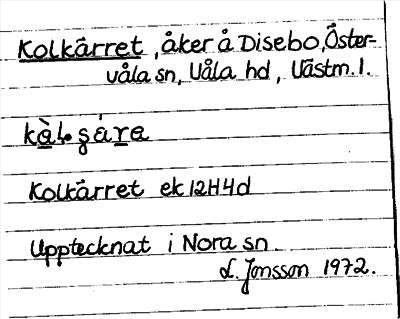 Kolkärret, åker å Disebo, Öster-
våla sn, Våla hd, Västm. l.
kàl.ʂárа
Kolkärret ek 12H4d
Upptecknat i Nora sn
L. Jonsson 1972.